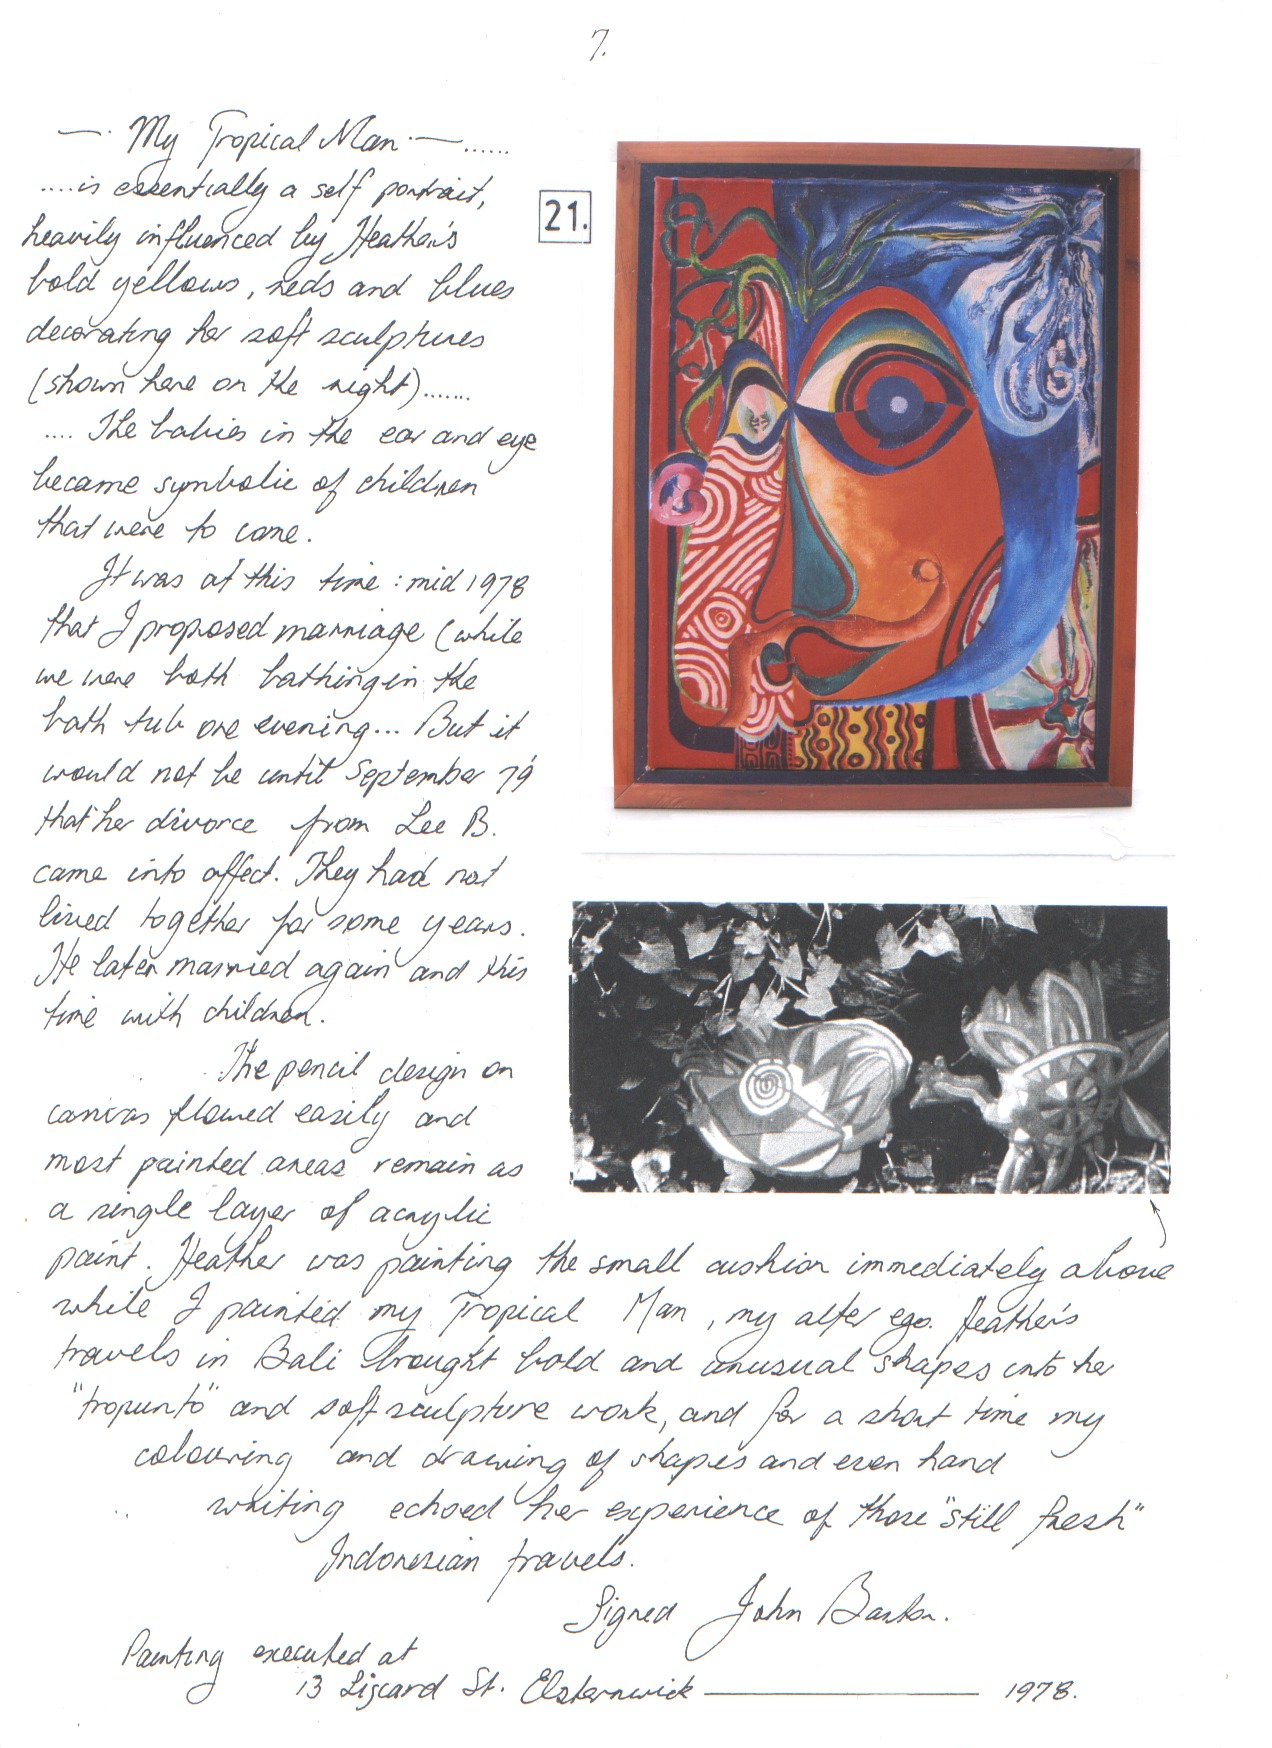 7.
— My Tropical Man — ......
....is essentially a self portrait,
heavily influenced by Heather's
bold yellows, reds and blues
decorating her soft sculptures
(shown here on the right).......
.... The babies in the ear and eye
became symbolic of children
that were to come.
It was at this time : mid 1978
that I proposed marriage (while
we were both bathing in the
bath tub one evening... But it
would not be until September 79'
that her divorce from Lee B.
came into affect. They had not
lived together for some years.
He later married again and this
time with children.
The pencil design on
canvas flowed easily and
most painted areas remain as
a single layer of acrylic
paint. Heather was painting the small cushion immediately above
while I painted my Tropical Man, my alter ego. Heather's
travels in Bali brought bold and unusual shapes into her
"tropunto" and soft sculpture work, and for a short time my
colouring and drawing of shapes and even hand
writing echoed her experience of those "still fresh"
Indonesian travels.
Signed John Barton.
Painting executed at
13 Liscard St. Elsternwick — 1978.
21.